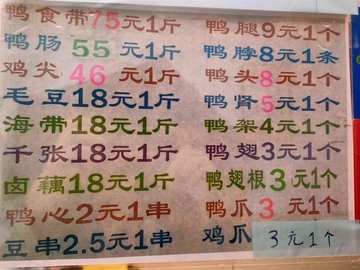 鸭食带75元1斤
鸭肠55元1斤
鸡尖46元1斤
毛豆18元1斤
海带18元1斤
千张18元1斤
卤藕18元1斤
鸭心2元1串
豆串2.5元1串
鸭腿9元1个
鸭脖8元1条
鸭头8元1个
鸭肾5元1个
鸭架4元1个
鸭翅3元1个
鸭翅根3元1个
鸭爪3元1个
鸡爪3元1个